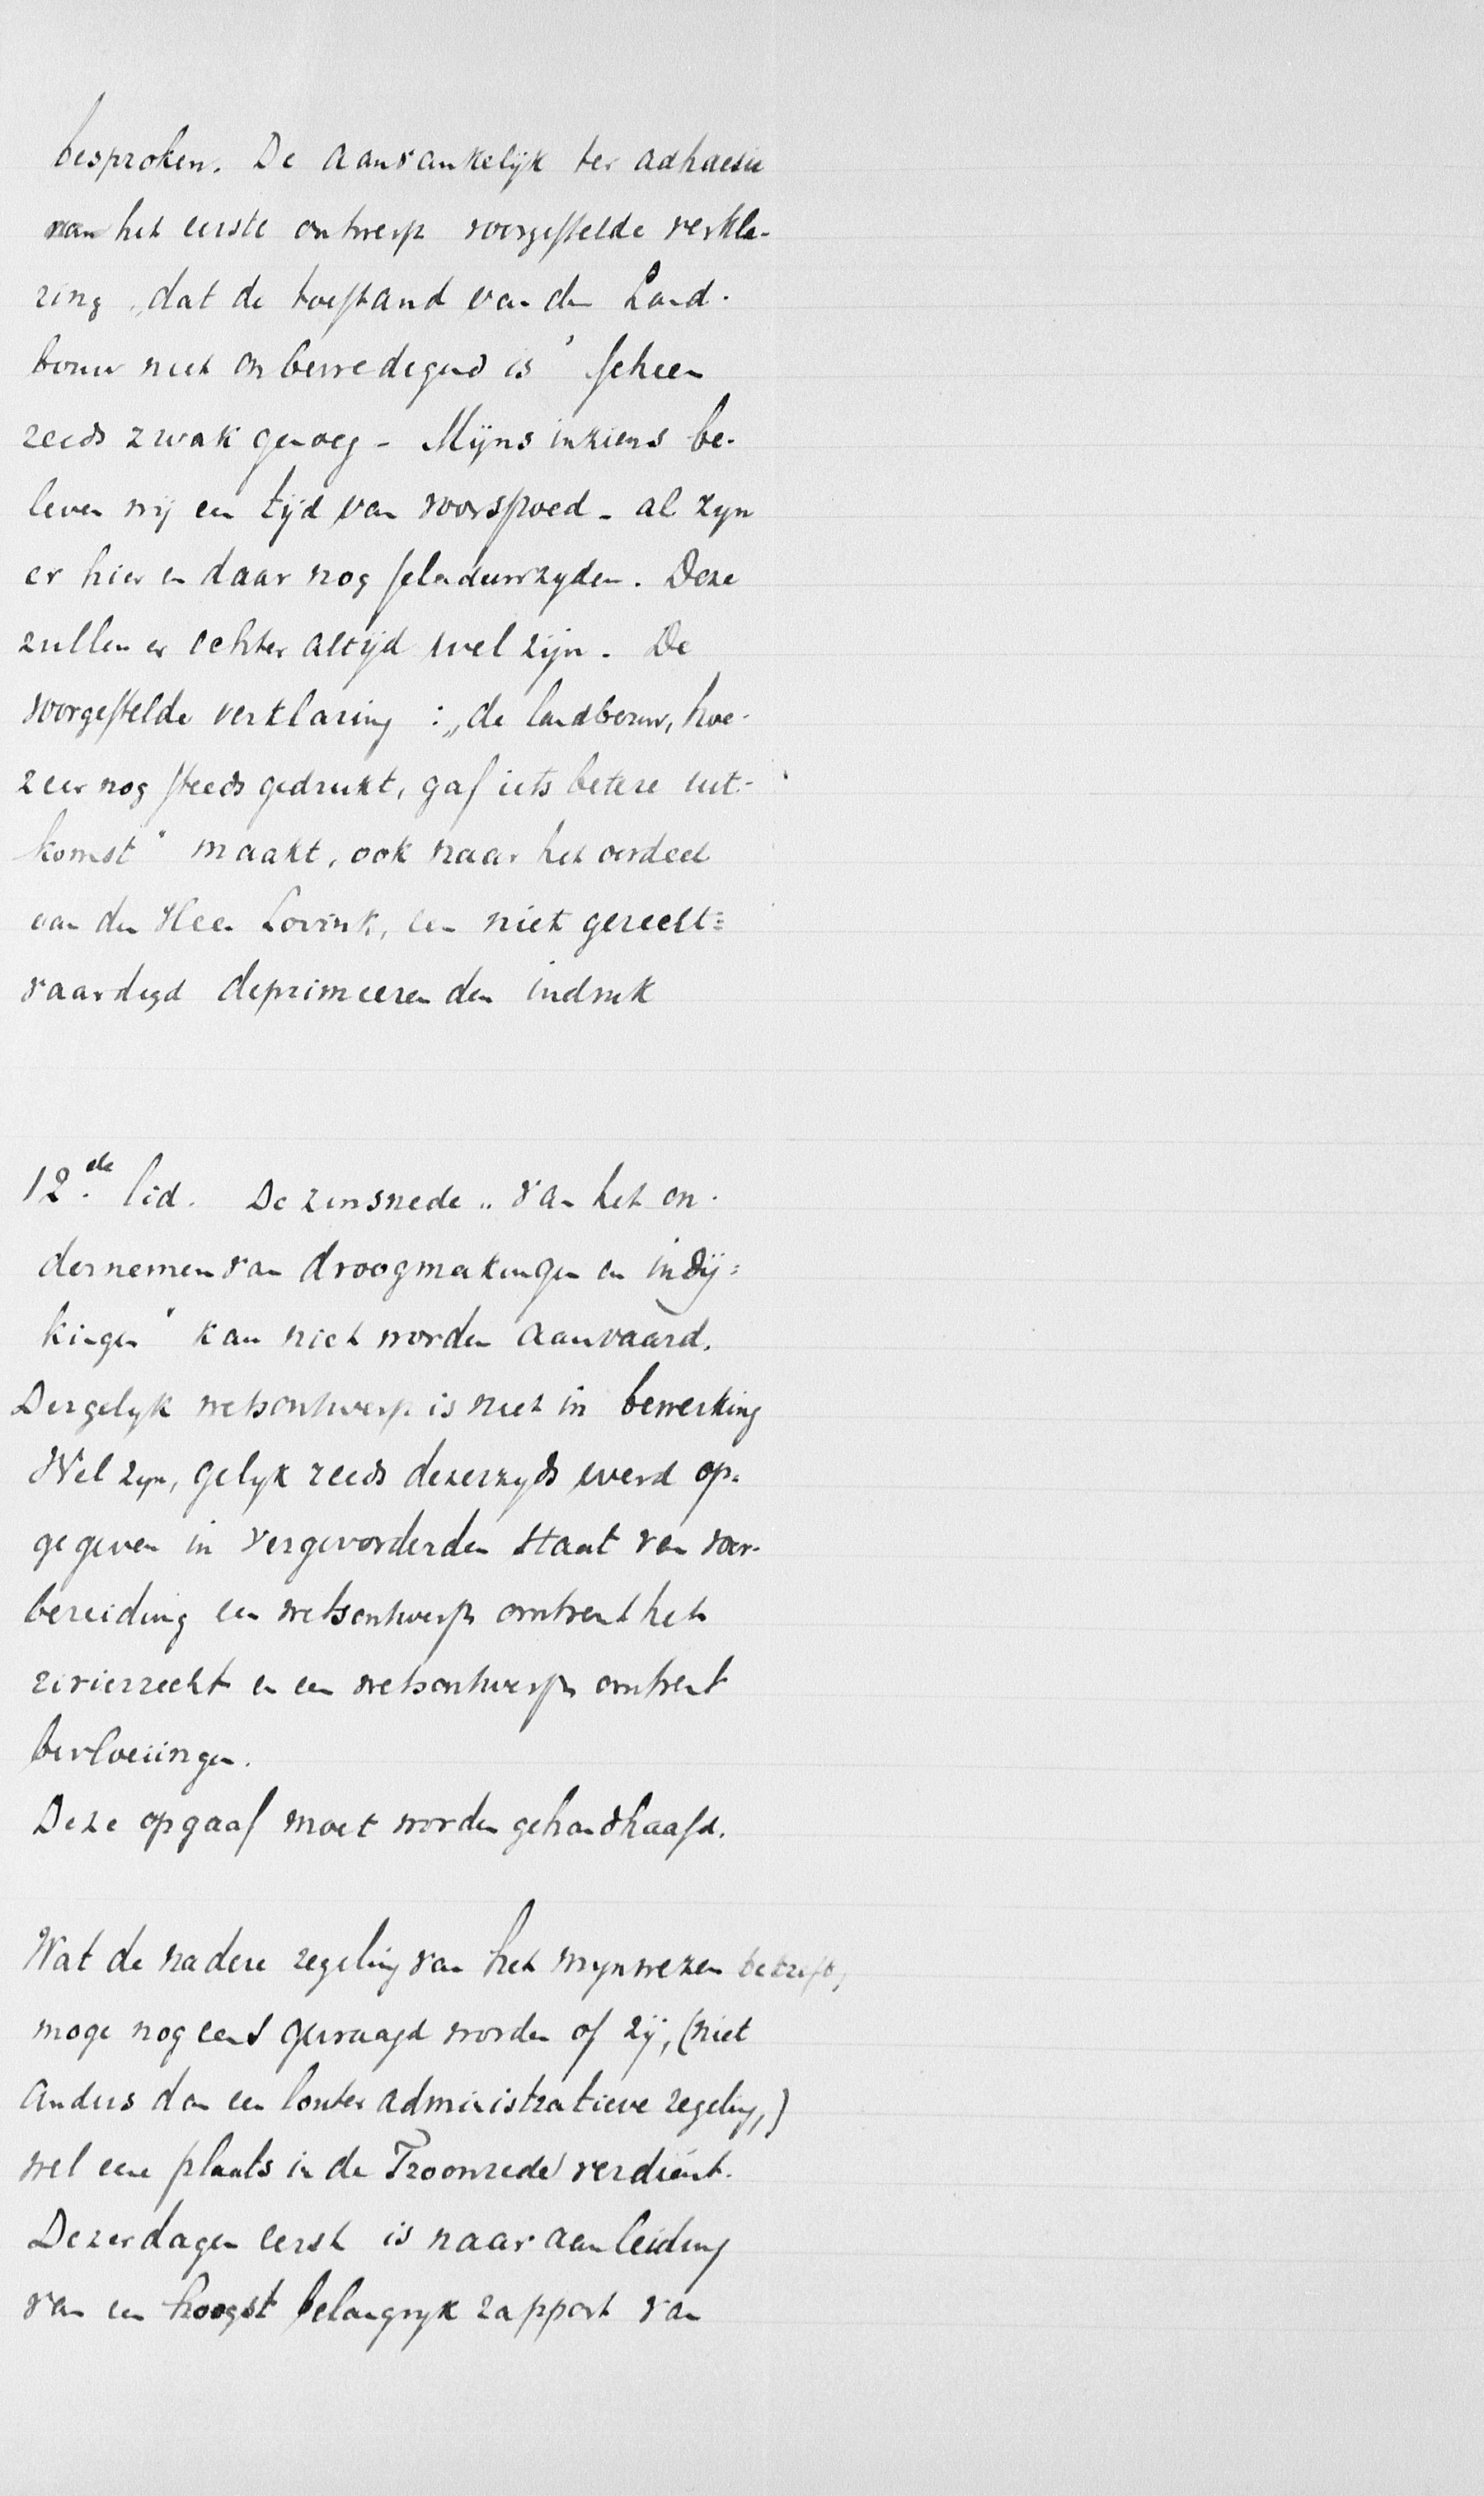 besproken. De aanvankelijk ter adhaesie
van het eerste ontwerp voorgestelde verkla-
ring „dat de toestand van den Land-
bouw niet onbevredigend is" scheen
reeds zwak genoeg - Mijns inziens be-
leven wij een tijd van voorspoed - al zyn
er hier en daar nog schaduwzyden. Deze
zullen er echter altijd wel zijn. De
voorgestelde verklaring : „de landbouw, hoe-
zeer nog steeds gedrukt, gaf iets betere uit-
komst" maakt, ook naar het oordeel
van den Heer Lovink, een niet gerecht=
vaardigd deprimeerenden indruk
12de lid. De zinsnede „van het on-
dernemen van droogmakingen en indij=
kingen" kan niet worden aanvaard.
Dergelyk wetsontwerp is niet in bewerking
Wel zyn, gelyk reeds dezerzyds werd op-
gegeven in vergevorderden staat van voor-
bereiding een wetsontwerp omtrent het
rivierrecht en een wetsontwerp omtrent
bevloeiingen.
Deze opgaaf moet worden gehandhaafd.
Wat de nadere regeling van het mynwezen betreft,
moge nog eens gevraagd worden of zij, (niet
anders dan een louter administratieve regeling,)
wel eene plaats in de Troonrede verdient.
Dezer dagen eerst is naar aanleiding
van een hoogst belangryk rapport van